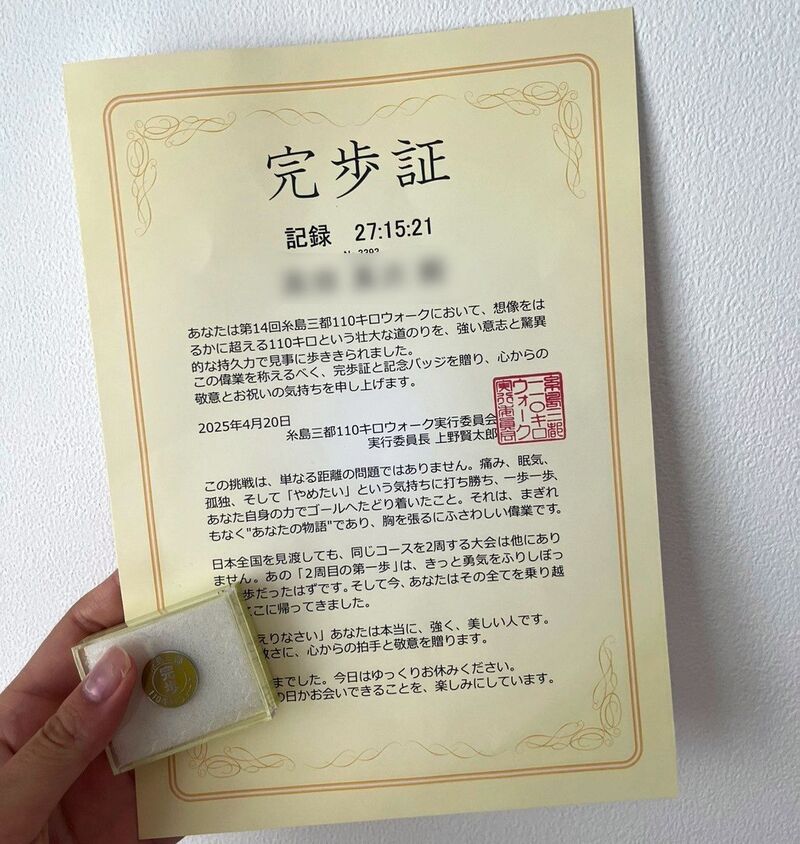 完歩証
記録 27:15:21
あなたは第14回糸島三都110キロウォークにおいて、想像をは
るかに超える110キロという壮大な道のりを、強い意志と驚異
的な持久力で見事に歩ききられました。
この偉業を称えるべく、完歩証と記念バッジを贈り、心からの
敬意とお祝いの気持ちを申し上げます。
2025年4月20日
糸島三都110キロウォーク実行委員会
実行委員長 上野賢太郎
糸島三都
一一〇キロ
ウォーク
実行委員会
この挑戦は、単なる距離の問題ではありません。痛み、眠気、
孤独、そして「やめたい」という気持ちに打ち勝ち、一歩一歩、
あなた自身の力でゴールへたどり着いたこと。それは、まぎれ
もなく"あなたの物語"であり、胸を張るにふさわしい偉業です。
日本全国を見渡しても、同じコースを2周する大会は他にあり
ません。あの「2周目の第一歩」は、きっと勇気をふりしぼっ
歩だったはずです。そして今、あなたはその全てを乗り越
ここに帰ってきました。
えりなさい」あなたは本当に、強く、美しい人です。
敢さに、心からの拍手と敬意を贈ります。
までした。今日はゆっくりお休みください。
の日かお会いできることを、楽しみにしています。